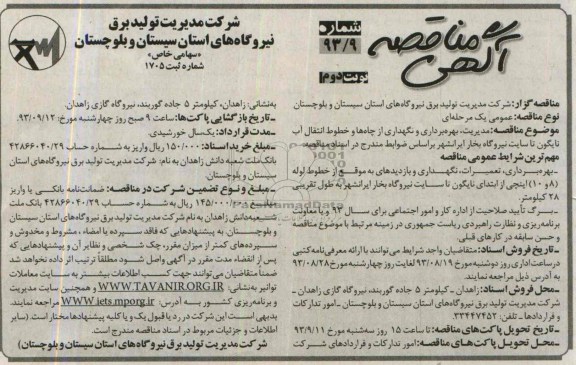 شرکت مدیریت تولید برق
نیروگاه‌های استان سیستان و بلوچستان
«سهامی خاص»
شماره ثبت ۱۷۰۵
شماره
۹۳/۹
نوبت دوم
آگهی مناقصه
مناقصه گزار: شرکت مدیریت تولید برق نیروگاه‌های استان سیستان و بلوچستان
نوع مناقصه: عمومی یک مرحله‌ای
موضوع مناقصه: مدیریت، بهره‌برداری و نگهداری از چاه‌ها و خطوط انتقال آب
نایگون تا سایت نیروگاه بخار ایرانشهر براساس ضوابط مندرج در اسناد مناقصه
مهم‌ترین شرایط عمومی مناقصه
ـ بهره‌برداری، تعمیرات، نگهداری و بازدیدهای به موقع از خطوط لوله
(۸ و ۱۰) اینچی از ابتدای نایگون تا سایت نیروگاه بخار ایرانشهر به طول تقریبی
۲۸ کیلومتر.
ـ برگ تأیید صلاحیت از اداره کار و امور اجتماعی برای سال ۹۳ و یا معاونت
برنامه‌ریزی و نظارت راهبردی ریاست جمهوری در زمینه مرتبط با موضوع مناقصه
و حسن سابقه در کارهای قبلی.
ـ تاریخ فروش اسناد: متقاضیان واجد شرایط می‌توانند با ارائه معرفی‌نامه کتبی
در ساعت اداری روز دوشنبه مورخ ۹۳/۰۸/۱۹ لغایت روز چهارشنبه مورخ ۹۳/۰۸/۲۸
به آدرس ذیل مراجعه نمایند.
ـ محل فروش اسناد: زاهدان ـ کیلومتر ۵ جاده گوربند، نیروگاه گازی زاهدان ـ
شرکت مدیریت تولید برق نیروگاه‌های استان سیستان و بلوچستان ـ امور تدارکات
و قراردادها ـ تلفن: ۳۳۴۴۷۴۵۲
ـ تاریخ تحویل پاکت‌های مناقصه: تا ساعت ۱۵ روز سه‌شنبه مورخ ۹۳/۹/۱۱
ـ محل تحویل پاکت‌های مناقصه: امور تدارکات و قراردادهای شرکت
به‌نشانی: زاهدان، کیلومتر ۵ جاده گوربند، نیروگاه گازی زاهدان.
ـ تاریخ بازگشایی پاکت‌ها: ساعت ۹ صبح روز چهارشنبه مورخ: ۹۳/۰۹/۱۲
ـ مدت قرارداد: یک‌سال خورشیدی.
ـ مبلغ خرید اسناد: ۱۵۰/۰۰۰ ریال واریز به شماره حساب ۴۲۸۶۶۰۴۰/۲۹
بانک ملت شعبه دانش زاهدان به نام: شرکت مدیریت تولید برق نیروگاه‌های استان
سیستان و بلوچستان.
ـ مبلغ و نوع تضمین شرکت در مناقصه: ضمانت‌نامه بانکی یا واریز
مبلغ ۱۴۵/۰۰۰/۰۰۰ ریال به شماره حساب ۴۲۸۶۶۰۴۰/۲۹ بانک ملت
شعبه دانش زاهدان به نام شرکت مدیریت تولید برق نیروگاه‌های استان سیستان
و بلوچستان. به پیشنهادهایی که فاقد سپرده یا امضاء، مشروط و مخدوش و
سپرده‌های کمتر از میزان مقرر، چک شخصی و نظایر آن و پیشنهادهایی که
پس از انقضاء مدت مقرر در آگهی واصل شود مطلقا ترتیب اثر داده نخواهد شد
ضمنا متقاضیان می‌توانند جهت کسب اطلاعات بیشتر به سایت معاملات
توانیر به‌نشانی: WWW.TAVANIR.ORG.IR و همچنین سایت مدیریت
و برنامه‌ریزی کشور به آدرس: WWW.iets.mporg.ir مراجعه نمایند.
بدیهی است این شرکت در رد یا قبول یک و یا کلیه پیشنهادها مختار است. (سایر
اطلاعات و جزئیات مربوط در اسناد مناقصه مندرج است.
شرکت مدیریت تولید برق نیروگاه‌های استان سیستان و بلوچستان)